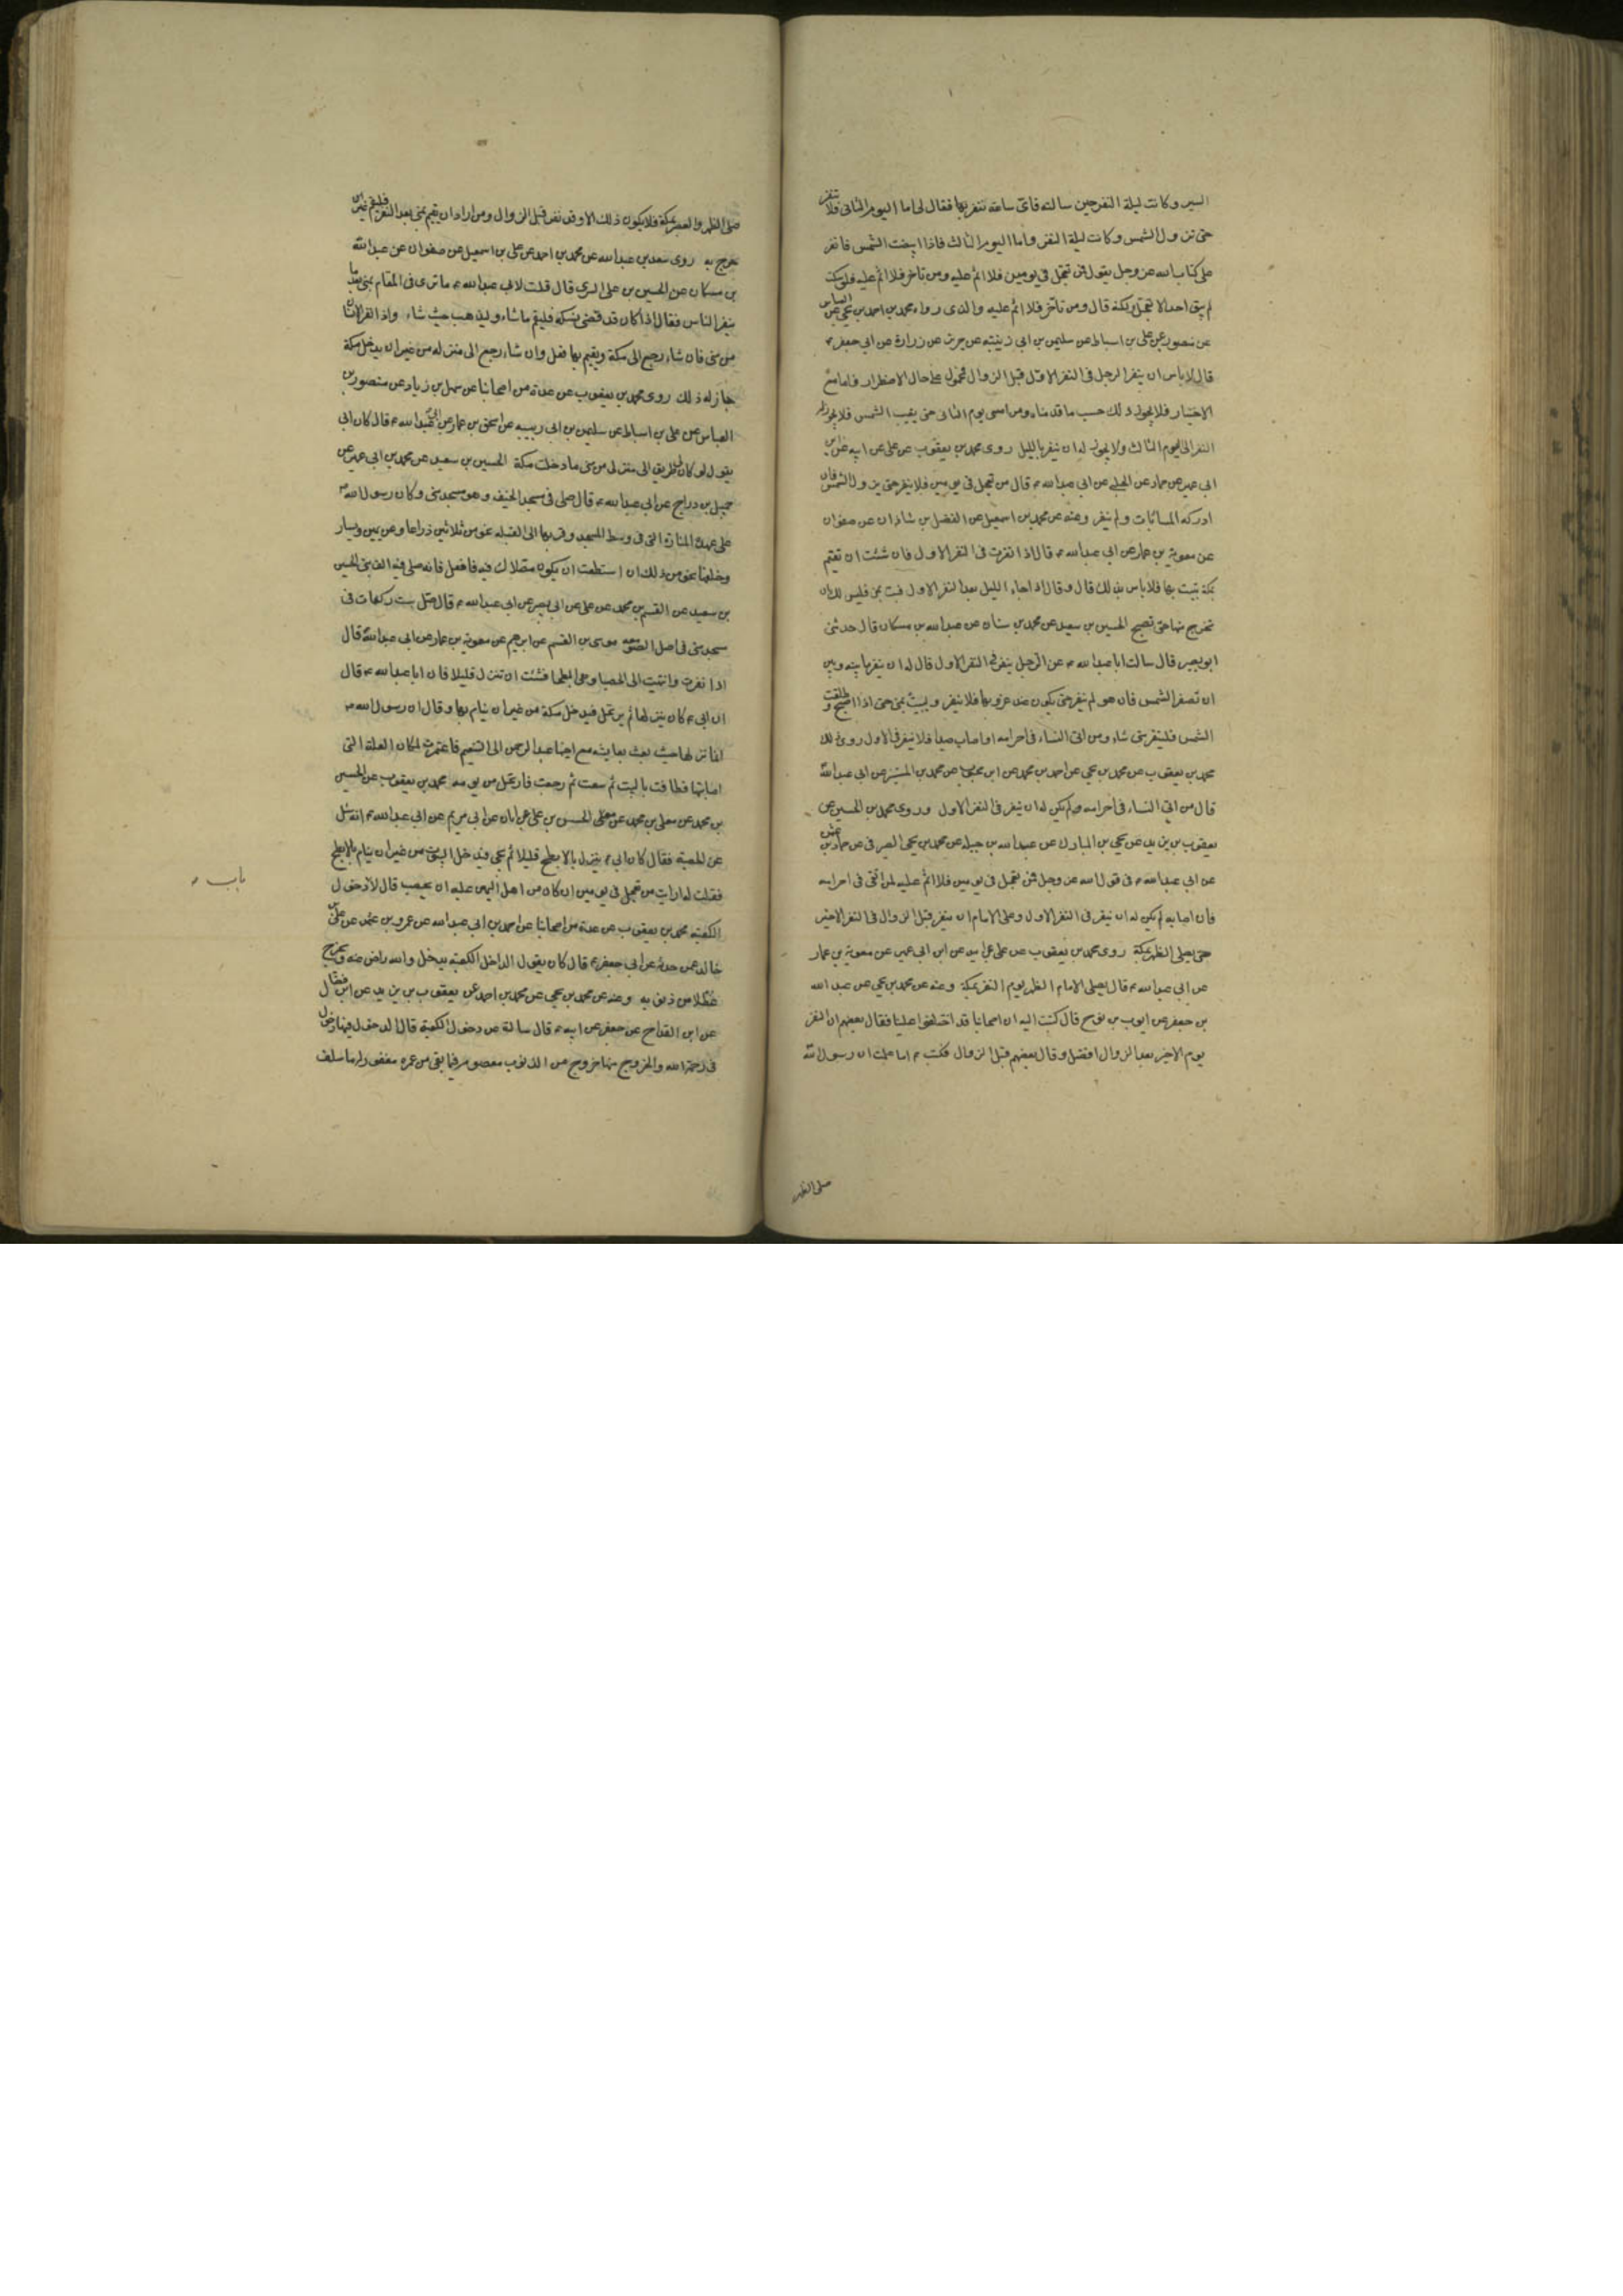 السير وكانت ليلة النفر حين سالته فاى ساعة ننفر بها فقال لى اما اليوم الثانى فلا تنفر
حتى تزول الشمس وكانت ليلة النفر واما اليوم الثالث فاذا ابيضت الشمس فانفر
على كتاب الله عز وجل يقول فمن تعجل فى يومين فلا اثم عليه ومن تاخر فلا اثم عليه فلو سكت
لم يبق احد الا تعجل ولكنه قال ومن تاخر فلا اثم عليه والذى رواه محمد بن احمد بن يحيى عن العباس
عن منصور عن على بن اسباط عن سليمن بن ابى زينبه عن حريز عن زرارة عن ابى جعفر ع
قال لا باس ان ينفر الرجل فى النفر الاول قبل الزوال فمحمول على حال الاضطرار فاما مع
الاختيار فلا يجوز ذلك حسب ما قدمناه ومن امسى يوم الثانى حتى يغيب الشمس فلا يجوز له
النفر الى اليوم الثالث ولا يجوز له ان ينفر بالليل روى محمد بن يعقوب عن على عن ابيه عن ابن
ابى عمير عن حماد عن الحلبى عن ابى عبد الله ع قال من تعجل فى يومين فلا ينفر حتى يزول الشمس فان
ادركه المساء بات ولم ينفر وعنه عن محمد بن اسمعيل عن الفضل بن شاذان عن صفوان
عن معوية بن عمار عن ابى عبد الله ع قال اذا نفرت فى النفر الاول فان شئت ان تقيم
بمكة تبيت بها فلا باس بذلك قال وقال اذا جاء الليل بعد النفر الاول فبت بمنى فليس لك ان
تخرج منها حتى تصبح الحسين بن سعيد عن محمد بن سنان عن عبد الله بن مسكان قال حدثنى
ابو بصير قال سالت ابا عبد الله ع عن الرجل ينفر فى النفر الاول قال له ان ينفر ما بينه وبين
ان تصفر الشمس فان هو لم ينفر حتى يكون عند غروبها فلا ينفر وليبيت بمنى حتى اذا اصبح وطلعت
الشمس فلينفر متى شاء ومن اتى النساء فى احرامه او اصاب صيدا فلا ينفر فى الاول روى ذلك
محمد بن يعقوب عن محمد بن يحيى عن احمد بن محمد عن ابن محبوب عن محمد بن المستنير عن ابى عبد الله
قال من اتى النساء فى احرامه لم يكن له ان ينفر فى النفر الاول وروى محمد بن الحسين عن
يعقوب بن يزيد عن يحيى بن المبارك عن عبد الله بن جبلة عن محمد بن يحيى الصيرفى عن حماد بن عثمن
عن ابى عبد الله ع فى قول الله عز وجل فمن تعجل فى يومين فلا اثم عليه لمن اتقى فى احرامه
فان اصابه لم يكن له ان ينفر فى النفر الاول وعلى الامام ان ينفر قبل الزوال فى النفر الاخير
حتى يصلى الظهر بمكة روى محمد بن يعقوب عن على عن ابيه عن ابن ابى عمير عن معوية بن عمار
عن ابى عبد الله ع قال يصلى الامام الظهر يوم النفر بمكة وعنه عن محمد بن يحيى عن عبد الله
بن جعفر عن ايوب بن نوح قال كتبت اليه ان اصحابنا قد اختلفوا علينا فقال بعضهم ان النفر
يوم الاخير بعد الزوال افضل وقال بعضهم قبل الزوال فكتب ع اما علمت ان رسول الله
صلى الظهر
صلى الظهر والعصر بمكة فلا يكون ذلك الا وقد نفر قبل الزوال ومن اراد ان يقيم بمنى بعد النفر فليقم غير ان
حرج به روى سعد بن عبد الله عن محمد بن احمد عن على بن اسمعيل عن صفوان عن عبد الله
بن مسكان عن الحسين بن على السرى قال قلت لابى عبد الله ع ما ترى فى المقام بمنى بعد ما
ينفر الناس فقال اذا كان قد قضى نسكه فليقم ما شاء وليذهب حيث شاء واذا نفر الانسان
من منى فان شاء رجع الى مكة ويقيم بها فعل وان شاء رجع الى منزله من غير ان يدخل مكة
جاز له ذلك روى محمد بن يعقوب عن عدة من اصحابنا عن سهل بن زياد عن منصور بن
العباس عن على بن اسباط عن سليمن بن ابى زينبه عن اسحق بن عمار عن ابى عبد الله ع قال كان ابى
يقول لو كان لى طريق الى منزلى من منى ما دخلت مكة الحسين بن سعيد عن محمد بن ابى عمير عن
جميل بن دراج عن ابى عبد الله ع قال صلى فى مسجد الخيف وهو مسجد منى وكان رسول الله ص
على عهده المنارة التى فى وسط المسجد وفوقها الى القبلة نحو من ثلاثين ذراعا وعن يمين ويسار
وخلفها نحو من ذلك ان استطعت ان يكون مصلاك فيه فافعل فانه صلى فيه الف نبى الحسين
بن سعيد عن القسم بن محمد عن على عن ابى بصير عن ابى عبد الله ع قال صل ست ركعات فى
مسجد منى فى اصل الصومعه موسى بن القسم عن ابرهيم عن معوية بن عمار عن ابى عبد الله قال
اذا نفرت وانتهيت الى الحصبا وهى البطحا فشئت ان تنزل قليلا فان ابا عبد الله ع قال
ان ابى ع كان ينزلها ثم يرتحل فيدخل مكة من غير ان ينام بها وقال ان رسول الله ص
انما نزلها حيث بعث بعايشه مع اخيها عبد الرحمن الى التنعيم فاعتمرت لمكان العلة التى
اصابتها فطافت بالبيت ثم سعت ثم رجعت فارتحل من يومه محمد بن يعقوب عن الحسين
بن محمد عن معلى بن محمد عن الحسن بن على عن ابان عن ابى مريم عن ابى عبد الله ع انه سئل
عن الحصبه فقال كان ابى ع ينزل بالابطح قليلا ثم يجى فيدخل البيوت من غير ان ينام بالابطح
فقلت له ارايت من تعجل فى يومين ان كان من اهل اليمن عليه ان يحصب قال لا دخول
الكعبه محمد بن يعقوب عن عدة من اصحابنا عن احمد بن ابى عبد الله عن عمرو بن عثمن عن على بن
خالد عمن حدثه عن ابى جعفر ع قال كان يقول الداخل الكعبه يدخل والله راض عنه ويخرج
عطلا من ذنوبه وعنه عن محمد بن يحيى عن محمد بن احمد عن يعقوب بن يزيد عن ابن فضال
عن ابن القداح عن جعفر عن ابيه ع قال سالته عن دخول الكعبة قال الدخول فيها دخول
فى رحمة الله والخروج منها خروج من الذنوب معصوم فيما بقى من عمره مغفور له ما سلف
باب